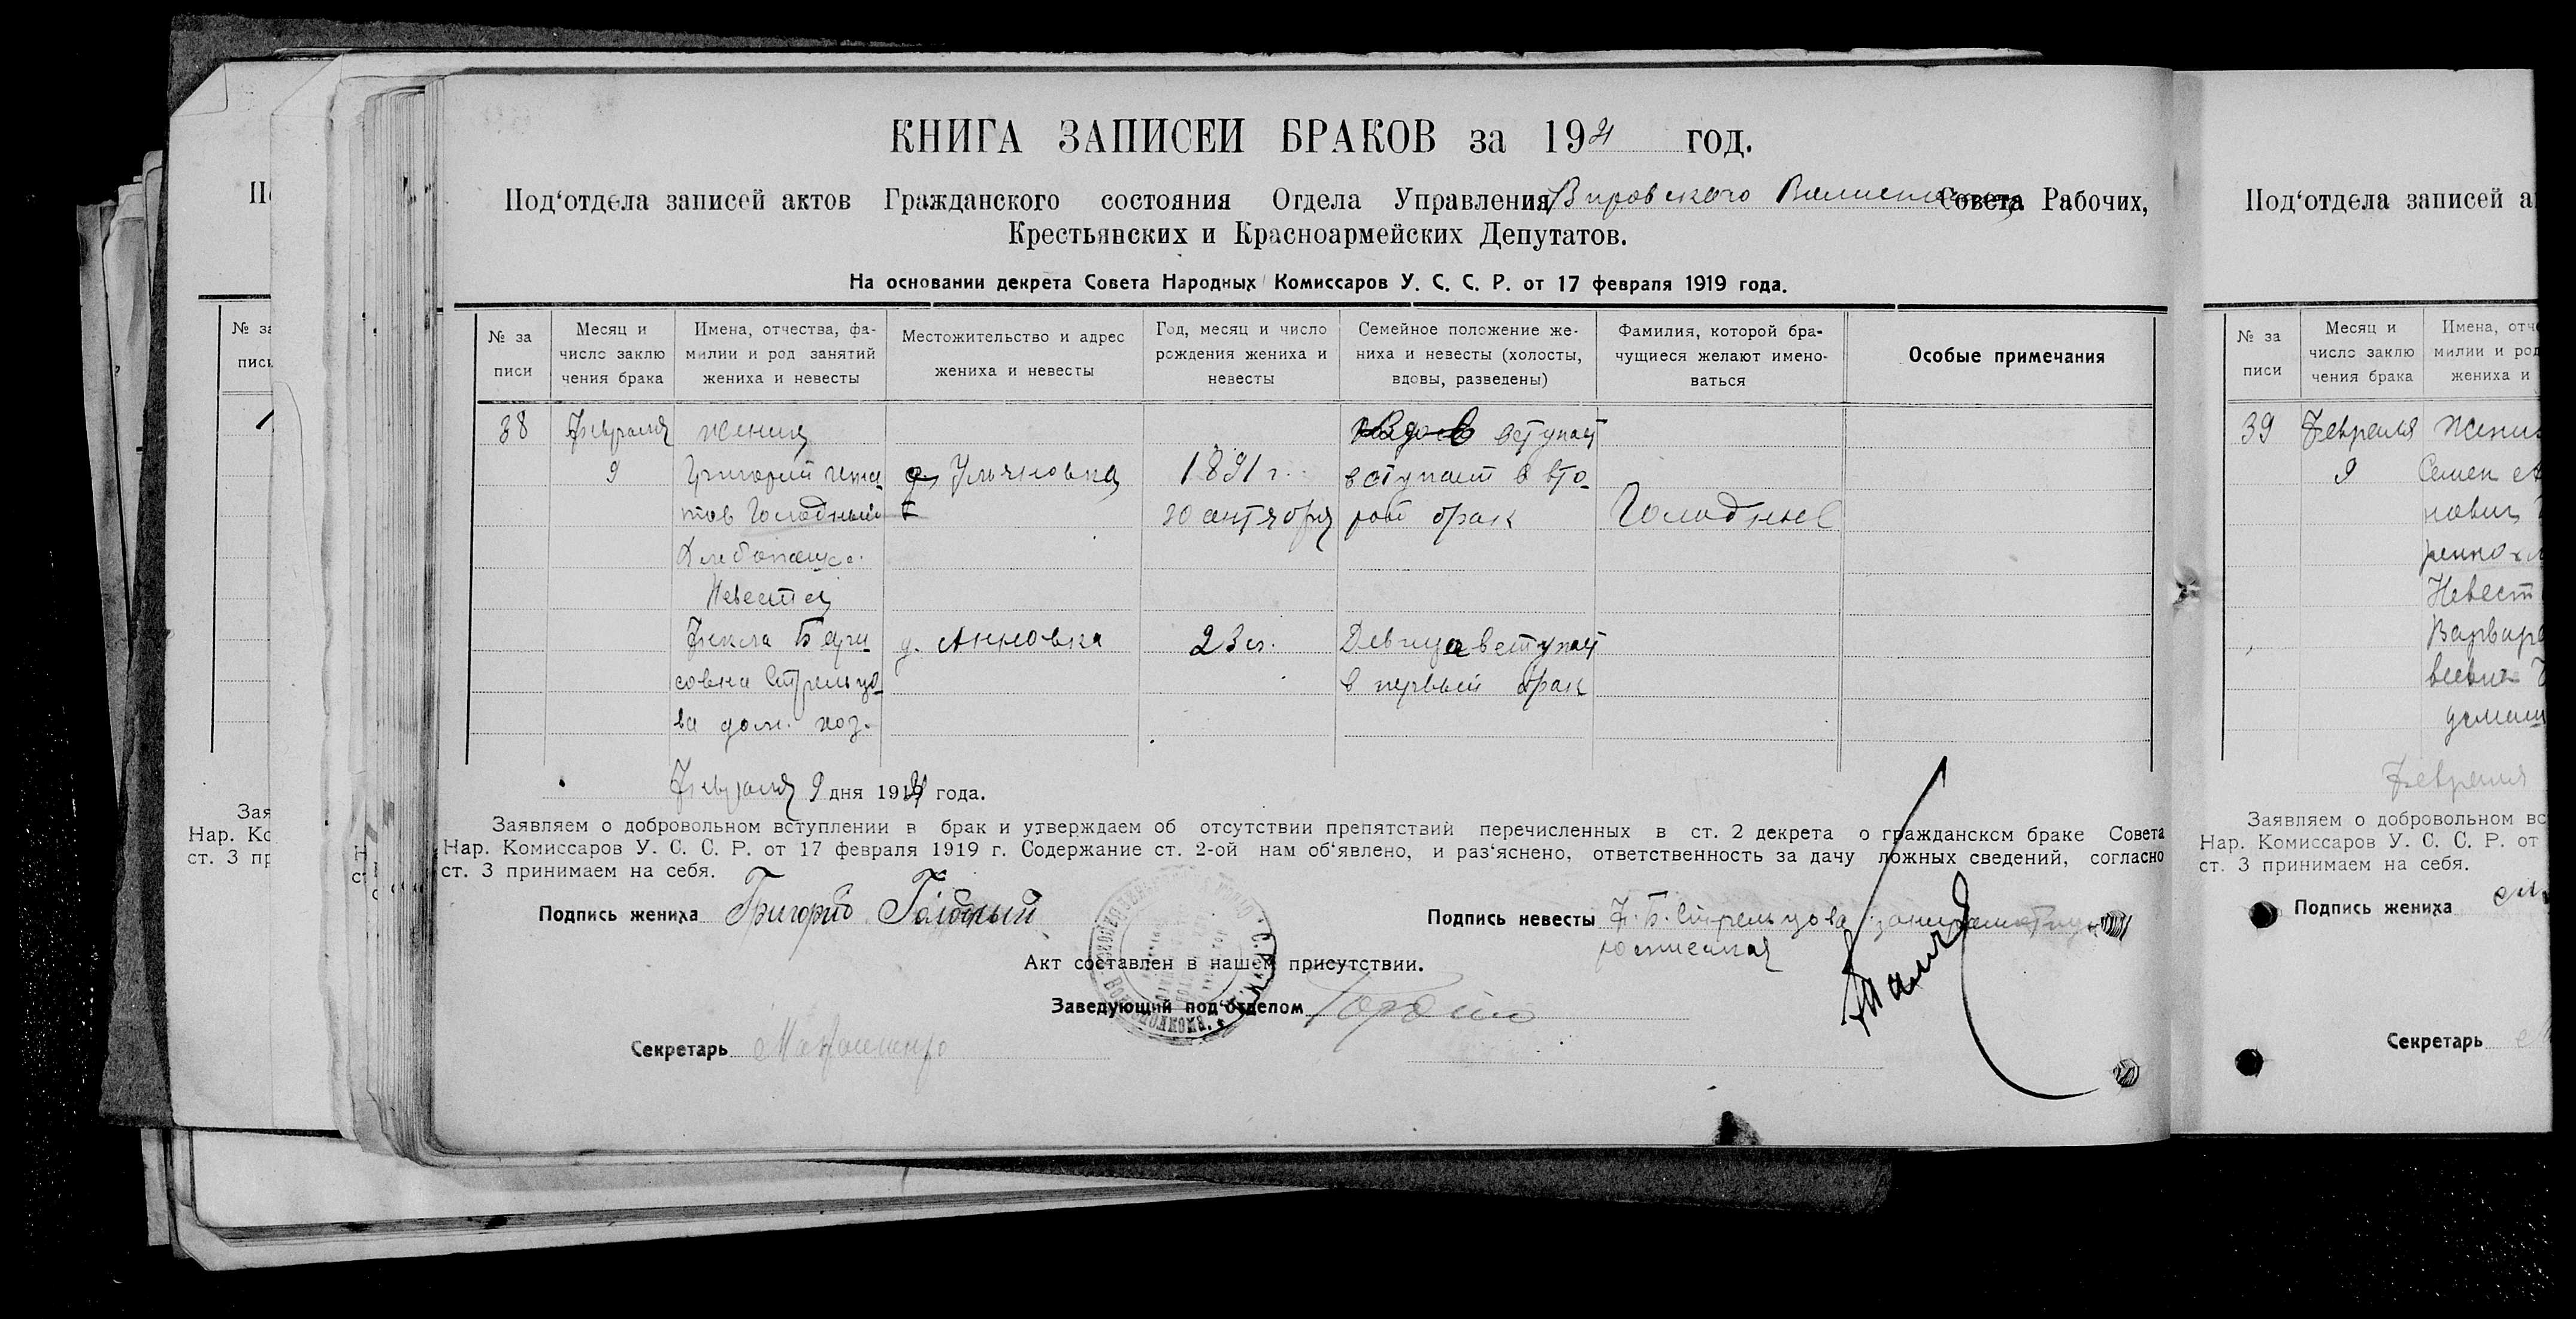 КНИГА ЗАПИСЕЙ БРАКОВ за 1921 год.
Под‘отдела записей актов Гражданского состояния Отдела Управления Вировского Совета Рабочих,
Крестьянских и Красноармейских Депутатов.
На основании декрета Совета Народных Комиссаров У. С. С. Р. от 17 февраля 1919 года.
№ за
писи
Месяц и
число заклю
чения брака
Имена, отчества, фа-
милии и род занятий
жениха и невесты
Местожительство и адрес
жениха и невесты
Год, месяц и число
рождения жениха и
невесты
Семейное положение же-
ниха и невесты (холосты,
вдовы, разведены)
Фамилия, которой бра-
чущиеся желают имено-
ваться
Особые примечания
38
Февраля
9
жених
Григорий
Голодный
Хлебопаш.
д. Ульяновка
1891 г.
вступает
вступает в вто-
рой брак
Голодные
Невеста
Фекла Бори-
совна Стрельцо-
ва дом. хоз.
д. Анновка
23 л.
Девица вступает
в первый брак
Февраля 9 дня 1921 года.
Заявляем о добровольном вступлении в брак и утверждаем об отсутствии препятствий перечисленных в ст. 2 декрета о гражданском браке Совета
Нар. Комиссаров У. С. С. Р. от 17 февраля 1919 г. Содержание ст. 2-ой нам об‘явлено, и раз‘яснено, ответственность за дачу ложных сведений, согласно
ст. 3 принимаем на себя.
Подпись жениха Григорий Голодный
Подпись невесты Ф. Б. Стрельцова
Акт составлен в нашем присутствии.
Заведующий под‘отделом
Секретарь
Под‘отдела записей а
№ за
писи
Месяц и
число заклю
чения брака
Имена, отч
милии и род
жениха и
39
Февраля
9
Жених
Семен
нович
Невест
Варвара
Февраля
Заявляем о добровольном вс
Нар. Комиссаров У. С. С. Р. от
ст. 3 принимаем на себя.
Подпись жениха
Секретарь
№ за
писи
Зая
Нар. Ко
ст. 3 пр